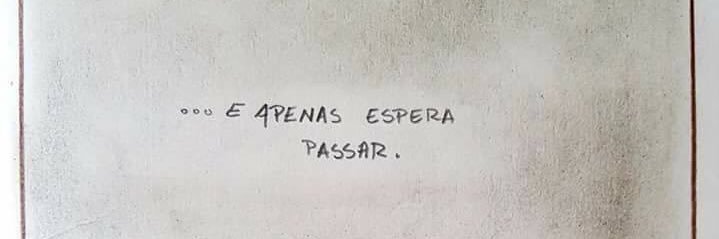 ... E APENAS ESPERA
PASSAR.